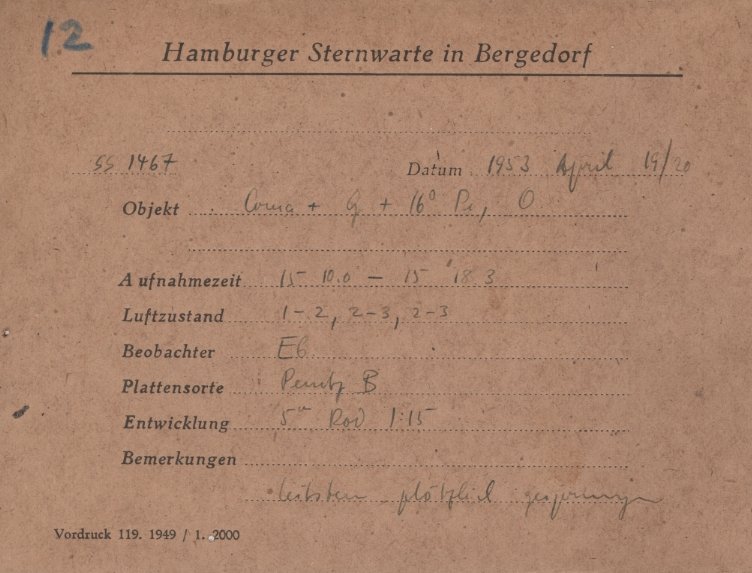 12
Hamburger Sternwarte in Bergedorf
SS 1467 Datum 1953 April 19/20
Objekt Coma + G + 16° Pe, O
Aufnahmezeit 15 10.0 — 15 18 3
Luftzustand 1-2, 2-3, 2-3
Beobachter
Plattensorte B
Entwicklung 5ᵐ Rod 1:15
Bemerkungen
plötzlich gesprungen
Vordruck 119. 1949 / 1. 2000